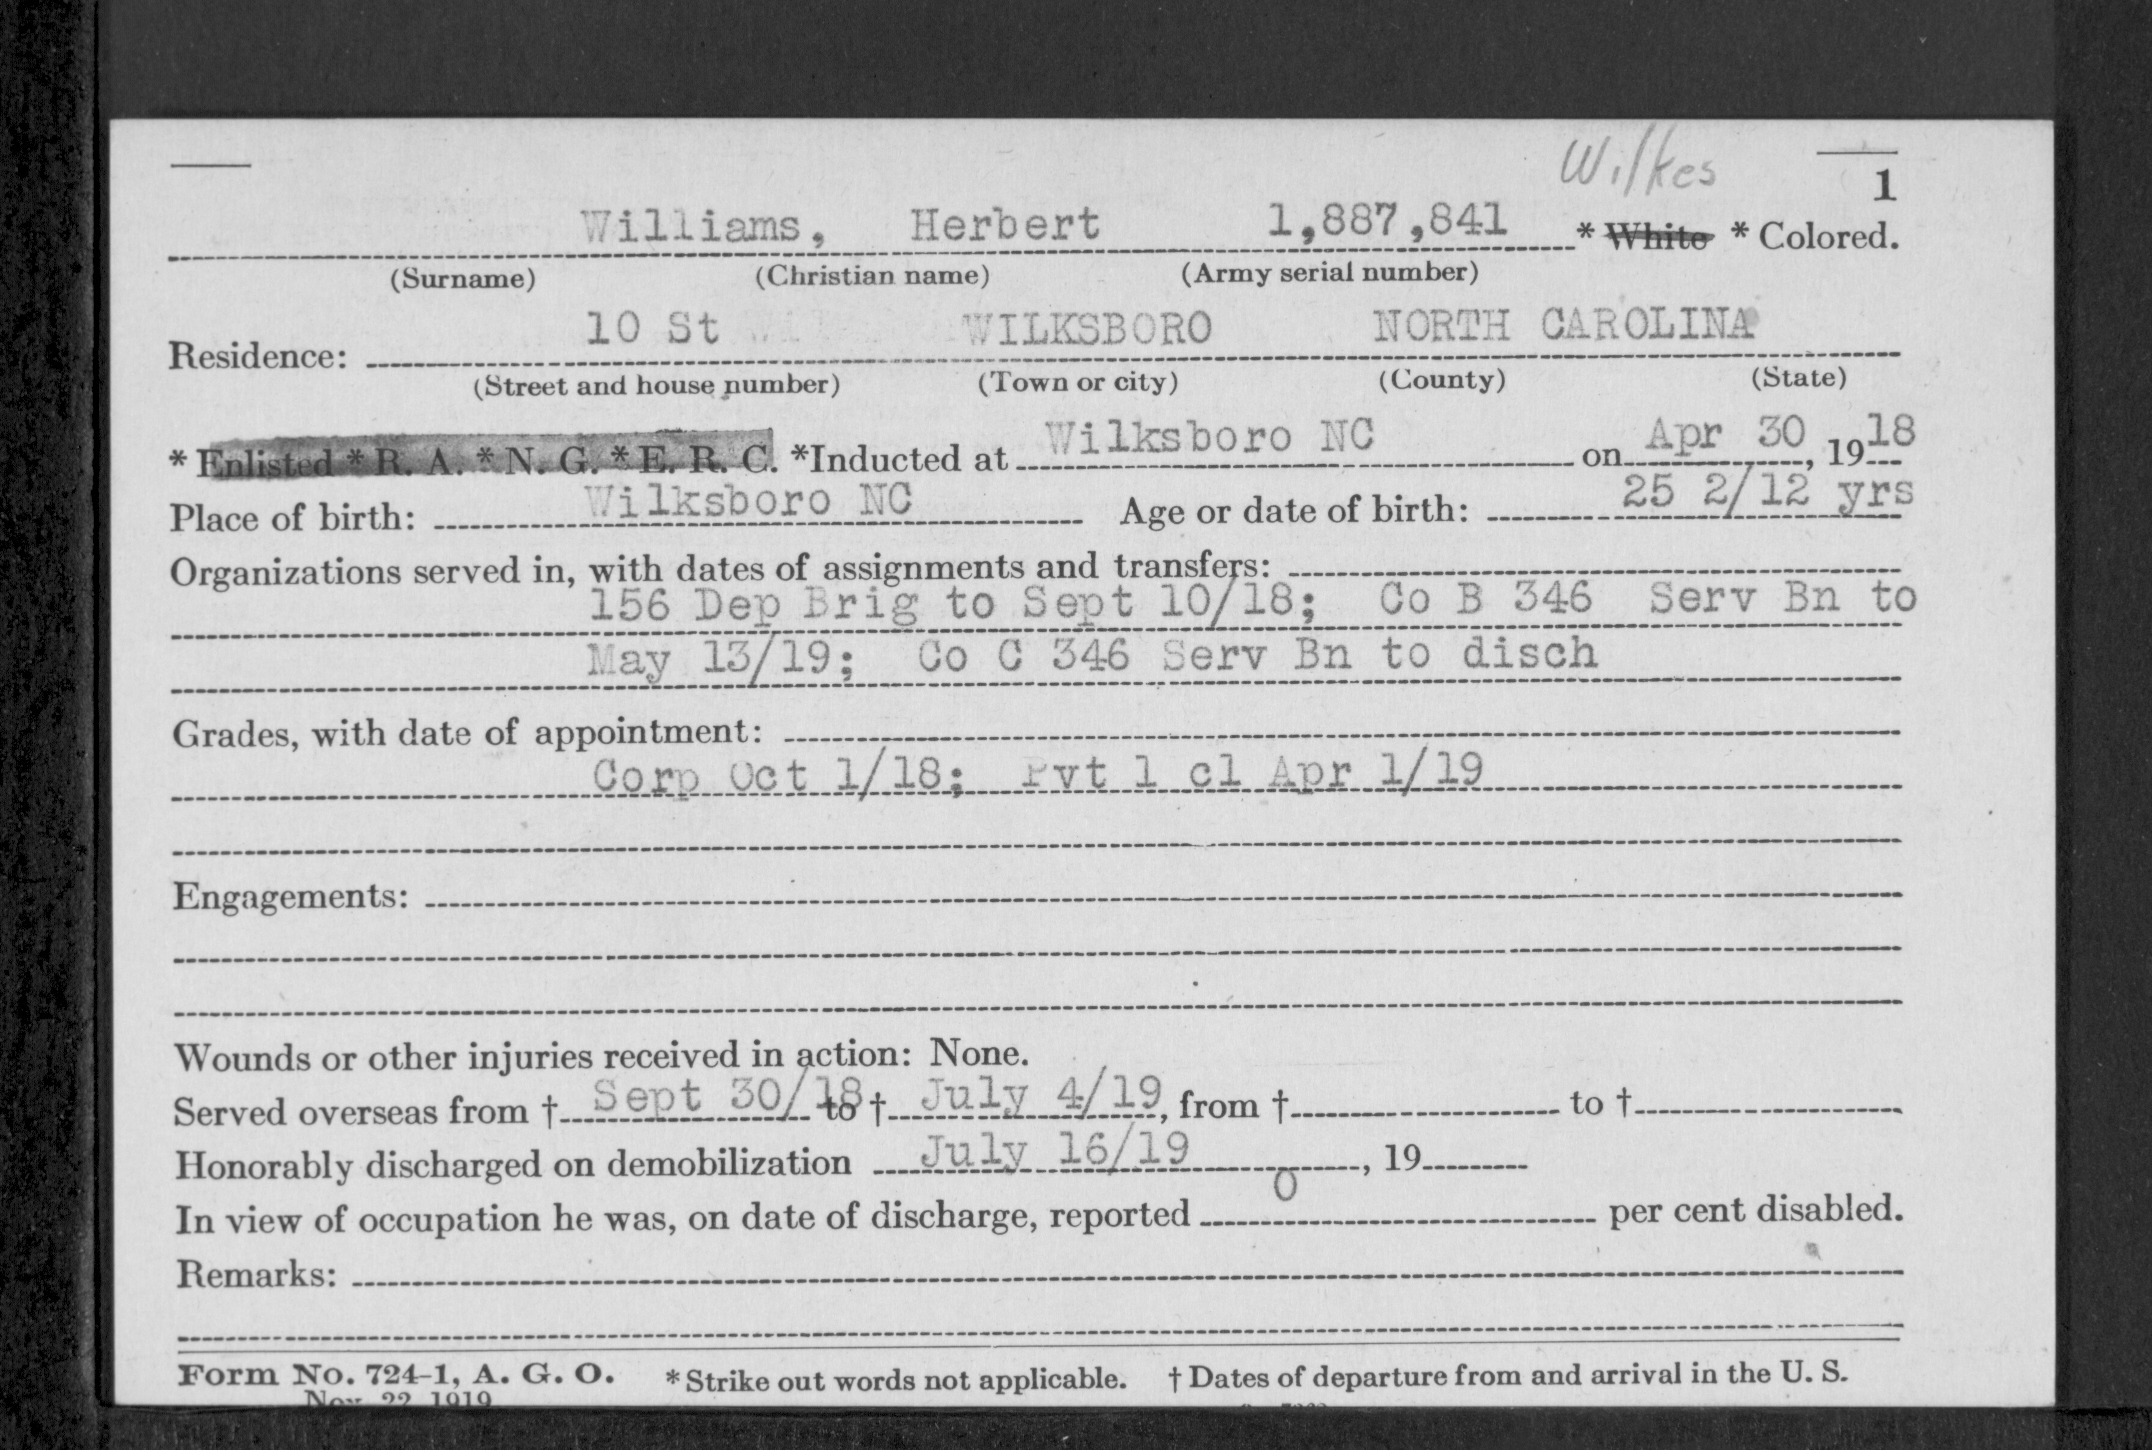 Wilkes
1
Williams, Herbert 1,887,841 * White * Colored.
(Surname) (Christian name) (Army serial number)
Residence: 10 St WILKSBORO NORTH CAROLINA
(Street and house number) (Town or city) (County) (State)
* Enlisted * R. A. * N. G. * E. R. C. *Inducted at Wilksboro NC on Apr 30, 1918
Place of birth: Wilksboro NC Age or date of birth: 25 2/12 yrs
Organizations served in, with dates of assignments and transfers:
156 Dep Brig to Sept 10/18; Co B 346 Serv Bn to
May 13/19; Co C 346 Serv Bn to disch
Grades, with date of appointment:
Corp Oct 1/18; Pvt 1 cl Apr 1/19
Engagements:
Wounds or other injuries received in action: None.
Served overseas from † Sept 30/18 to † July 4/19, from † to †
Honorably discharged on demobilization July 16/19, 19
In view of occupation he was, on date of discharge, reported 0 per cent disabled.
Remarks:
Form No. 724-1, A. G. O. * Strike out words not applicable. † Dates of departure from and arrival in the U. S.
Nov. 22, 1919